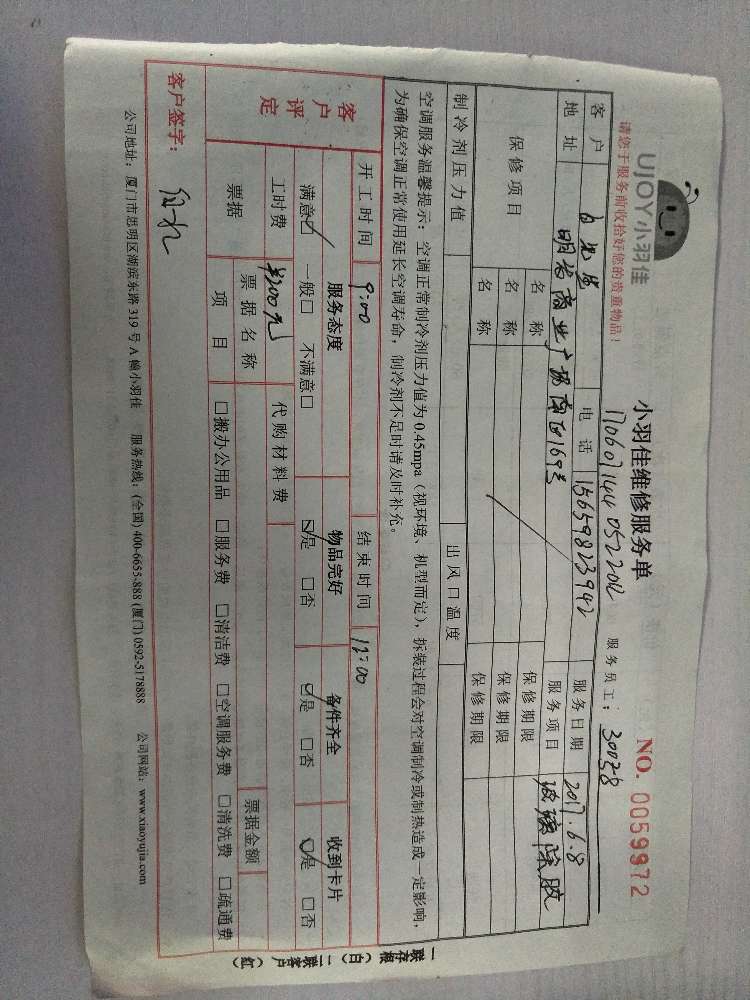 UJOY小羽佳
请您于服务前收拾好您的贵重物品！
小羽佳维修服务单
NO. 0059972
服务员工：3003-8
客户 电话 15659823942 服务日期 2017.6.8
地址 明发商业广场南区169号 服务项目 玻璃除胶
保修项目 名称 保修期限
名称 保修期限
名称 保修期限
制冷剂压力值 出风口温度
空调服务温馨提示：空调正常制冷剂压力值为0.45mpa（视环境、机型而定），拆装过程会对空调制冷或制热造成一定影响，
为确保空调正常使用延长空调寿命，制冷剂不足时请及时补充。
开工时间 9:00 结束时间 12:00
客户评定 服务态度 物品完好 备件齐全 收到卡片
满意☑ 一般□ 不满意□ ☑是 □否 ☑是 □否 ☑是 □否
工时费 ¥200元 代购材料费
票据 票据名称 票据金额
项目 □搬办公用品 □服务费 □清洁费 □空调服务费 □清洗费 □疏通费
客户签字：
公司地址：厦门市思明区湖滨东路319号A幢小羽佳 服务热线：(全国) 400-6655-888 (厦门) 0592-5178888 公司网站：www.xiaoyujia.com
一联存根（白）二联客户（红）